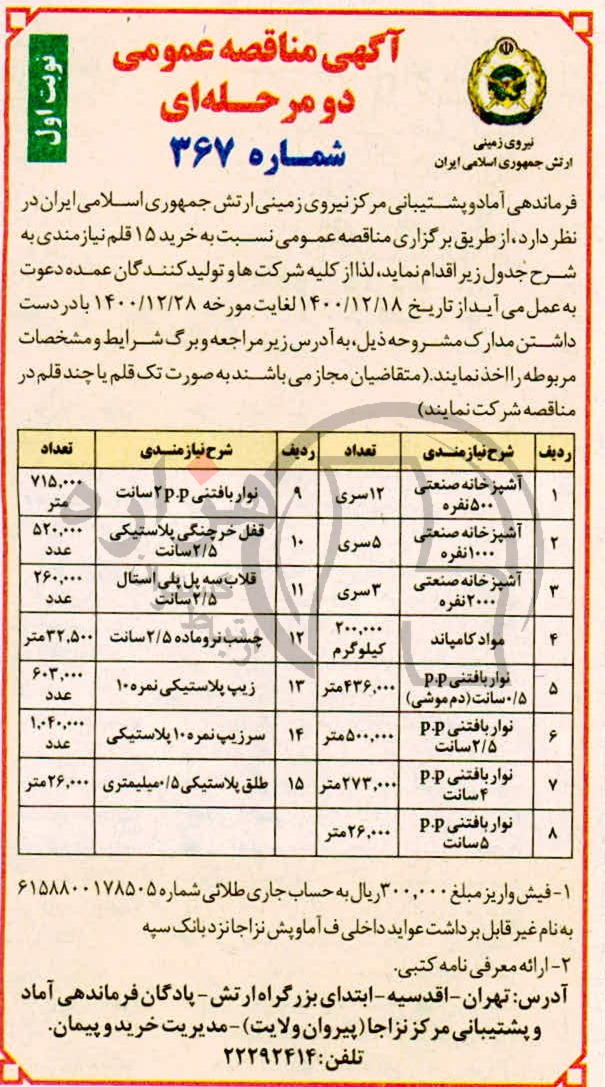 آگهی مناقصه عمومی
دو مرحله‌ای
شماره ۳۶۷
نوبت اول
نیروی زمینی
ارتش جمهوری اسلامی ایران
فرماندهی آماد و پشتیبانی مرکز نیروی زمینی ارتش جمهوری اسلامی ایران در
نظر دارد، از طریق برگزاری مناقصه عمومی نسبت به خرید ۱۵ قلم نیازمندی به
شرح جدول زیر اقدام نماید، لذا از کلیه شرکت ها و تولیدکنندگان عمده دعوت
به عمل می آید از تاریخ ۱۴۰۰/۱۲/۱۸ لغایت مورخه ۱۴۰۰/۱۲/۲۸ با در دست
داشتن مدارک مشروحه ذیل، به آدرس زیر مراجعه و برگ شرایط و مشخصات
مربوطه را اخذ نمایند. (متقاضیان مجاز می باشند به صورت تک قلم یا چند قلم در
مناقصه شرکت نمایند)
ردیف شرح نیازمندی تعداد ردیف شرح نیازمندی تعداد
۱ آشپزخانه صنعتی ۵۰۰نفره ۱۲سری ۹ نوار بافتنی p.p ۲سانت ۷۱۵,۰۰۰ متر
۲ آشپزخانه صنعتی ۱۰۰۰نفره ۵سری ۱۰ قفل خرچنگی پلاستیکی ۲/۵سانت ۵۲۰,۰۰۰ عدد
۳ آشپزخانه صنعتی ۲۰۰۰نفره ۳سری ۱۱ قلاب سه پل پلی استال ۲/۵سانت ۲۶۰,۰۰۰ عدد
۴ مواد کامپاند ۲۰۰,۰۰۰ کیلوگرم ۱۲ چسب نر و ماده ۲/۵ سانت ۳۲,۵۰۰متر
۵ نوار بافتنی p.p ۰/۵سانت(دم موشی) ۴۳۶,۰۰۰متر ۱۳ زیپ پلاستیکی نمره ۱۰ ۶۰۳,۰۰۰ عدد
۶ نوار بافتنی p.p ۲/۵سانت ۵۰۰,۰۰۰متر ۱۴ سرزیپ نمره ۱۰ پلاستیکی ۱,۰۴۰,۰۰۰ عدد
۷ نوار بافتنی p.p ۴سانت ۲۷۳,۰۰۰متر ۱۵ طلق پلاستیکی ۰/۵میلیمتری ۲۶,۰۰۰متر
۸ نوار بافتنی p.p ۵سانت ۲۶,۰۰۰متر
۱- فیش واریز مبلغ ۳۰۰,۰۰۰ریال به حساب جاری طلائی شماره ۶۱۵۸۸۰۰۱۷۸۵۰۵
به نام غیر قابل برداشت عواید داخلی ف آماوپش نزاجا نزد بانک سپه
۲- ارائه معرفی نامه کتبی.
آدرس: تهران - اقدسیه - ابتدای بزرگراه ارتش - پادگان فرماندهی آماد
و پشتیبانی مرکز نزاجا (پیروان ولایت) - مدیریت خرید و پیمان.
تلفن: ۲۲۲۹۲۴۱۴